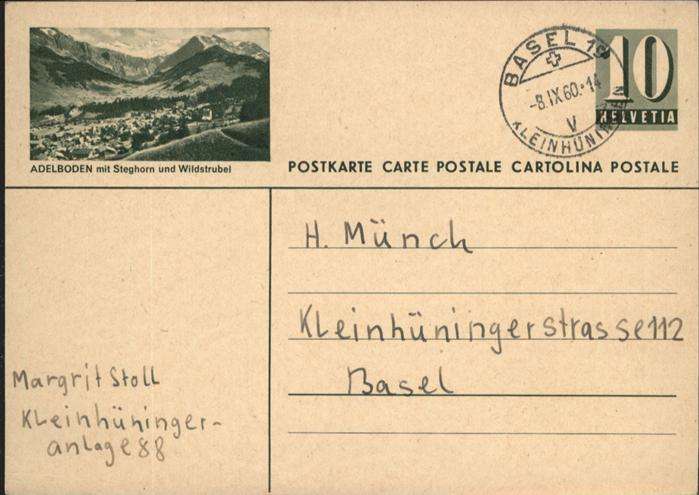 BASEL 19
-8.IX.60.-14
V
KLEINHÜNINGEN
10
HELVETIA
ADELBODEN mit Steghorn und Wildstrubel
POSTKARTE CARTE POSTALE CARTOLINA POSTALE
H. Münch
Kleinhüningerstrasse 112
Basel
Margrit Stoll
Kleinhüninger-
anlage 88